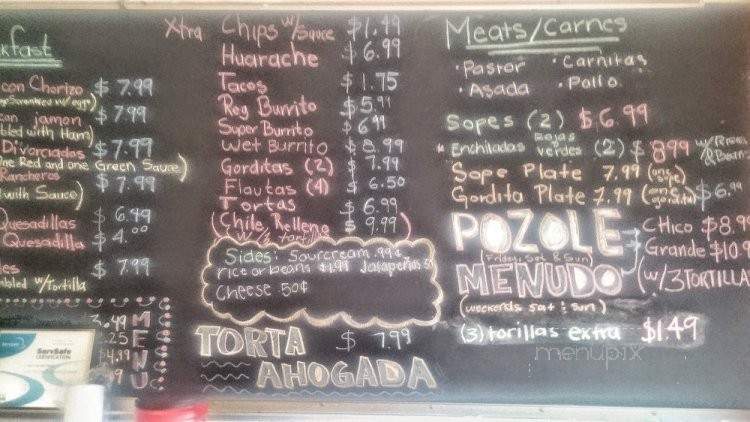 kfast
con Chorizo $7.99
con jamon $7.99
bled with Ham)
Divorciados $7.99
one Red and one Green Sauce)
Rancheros $7.99
with Sauce)
Quesadillas $6.99
Quesadilla $4.00
les $7.99
mbled w/Tortilla
3.49
.25
$4.99
9
MENU
ServSafe
CERTIFICATION
Xtra Chips w/Sauce $1.49
Huarache $6.99
Tacos $1.75
Reg Burrito $5.91
Super Burrito $6.99
Wet Burrito $8.99
Gorditas (2) $7.99
Flautas (4) $6.50
Tortas $6.99
(Chile Relleno $9.99)
Sides: Sourcream .99¢
rice or beans $1.99 Jalapeños
Cheese 50¢
TORTA $7.99
AHOGADA
Meats/Carnes
• Pastor • Carnitas
• Asada • Pollo
Sopes (2) $6.99
* Enchiladas Rojas verdes (2) $8.99 w/Rice & Beans
Sope Plate 7.99
Gordita Plate 7.99 $6.99
POZOLE Chico $8.9
(Friday, Sat & Sun) Grande $10.9
MENUDO (w/3TORTILLA
(weekends sat & sun)
(3) torillas extra $1.49
menupix